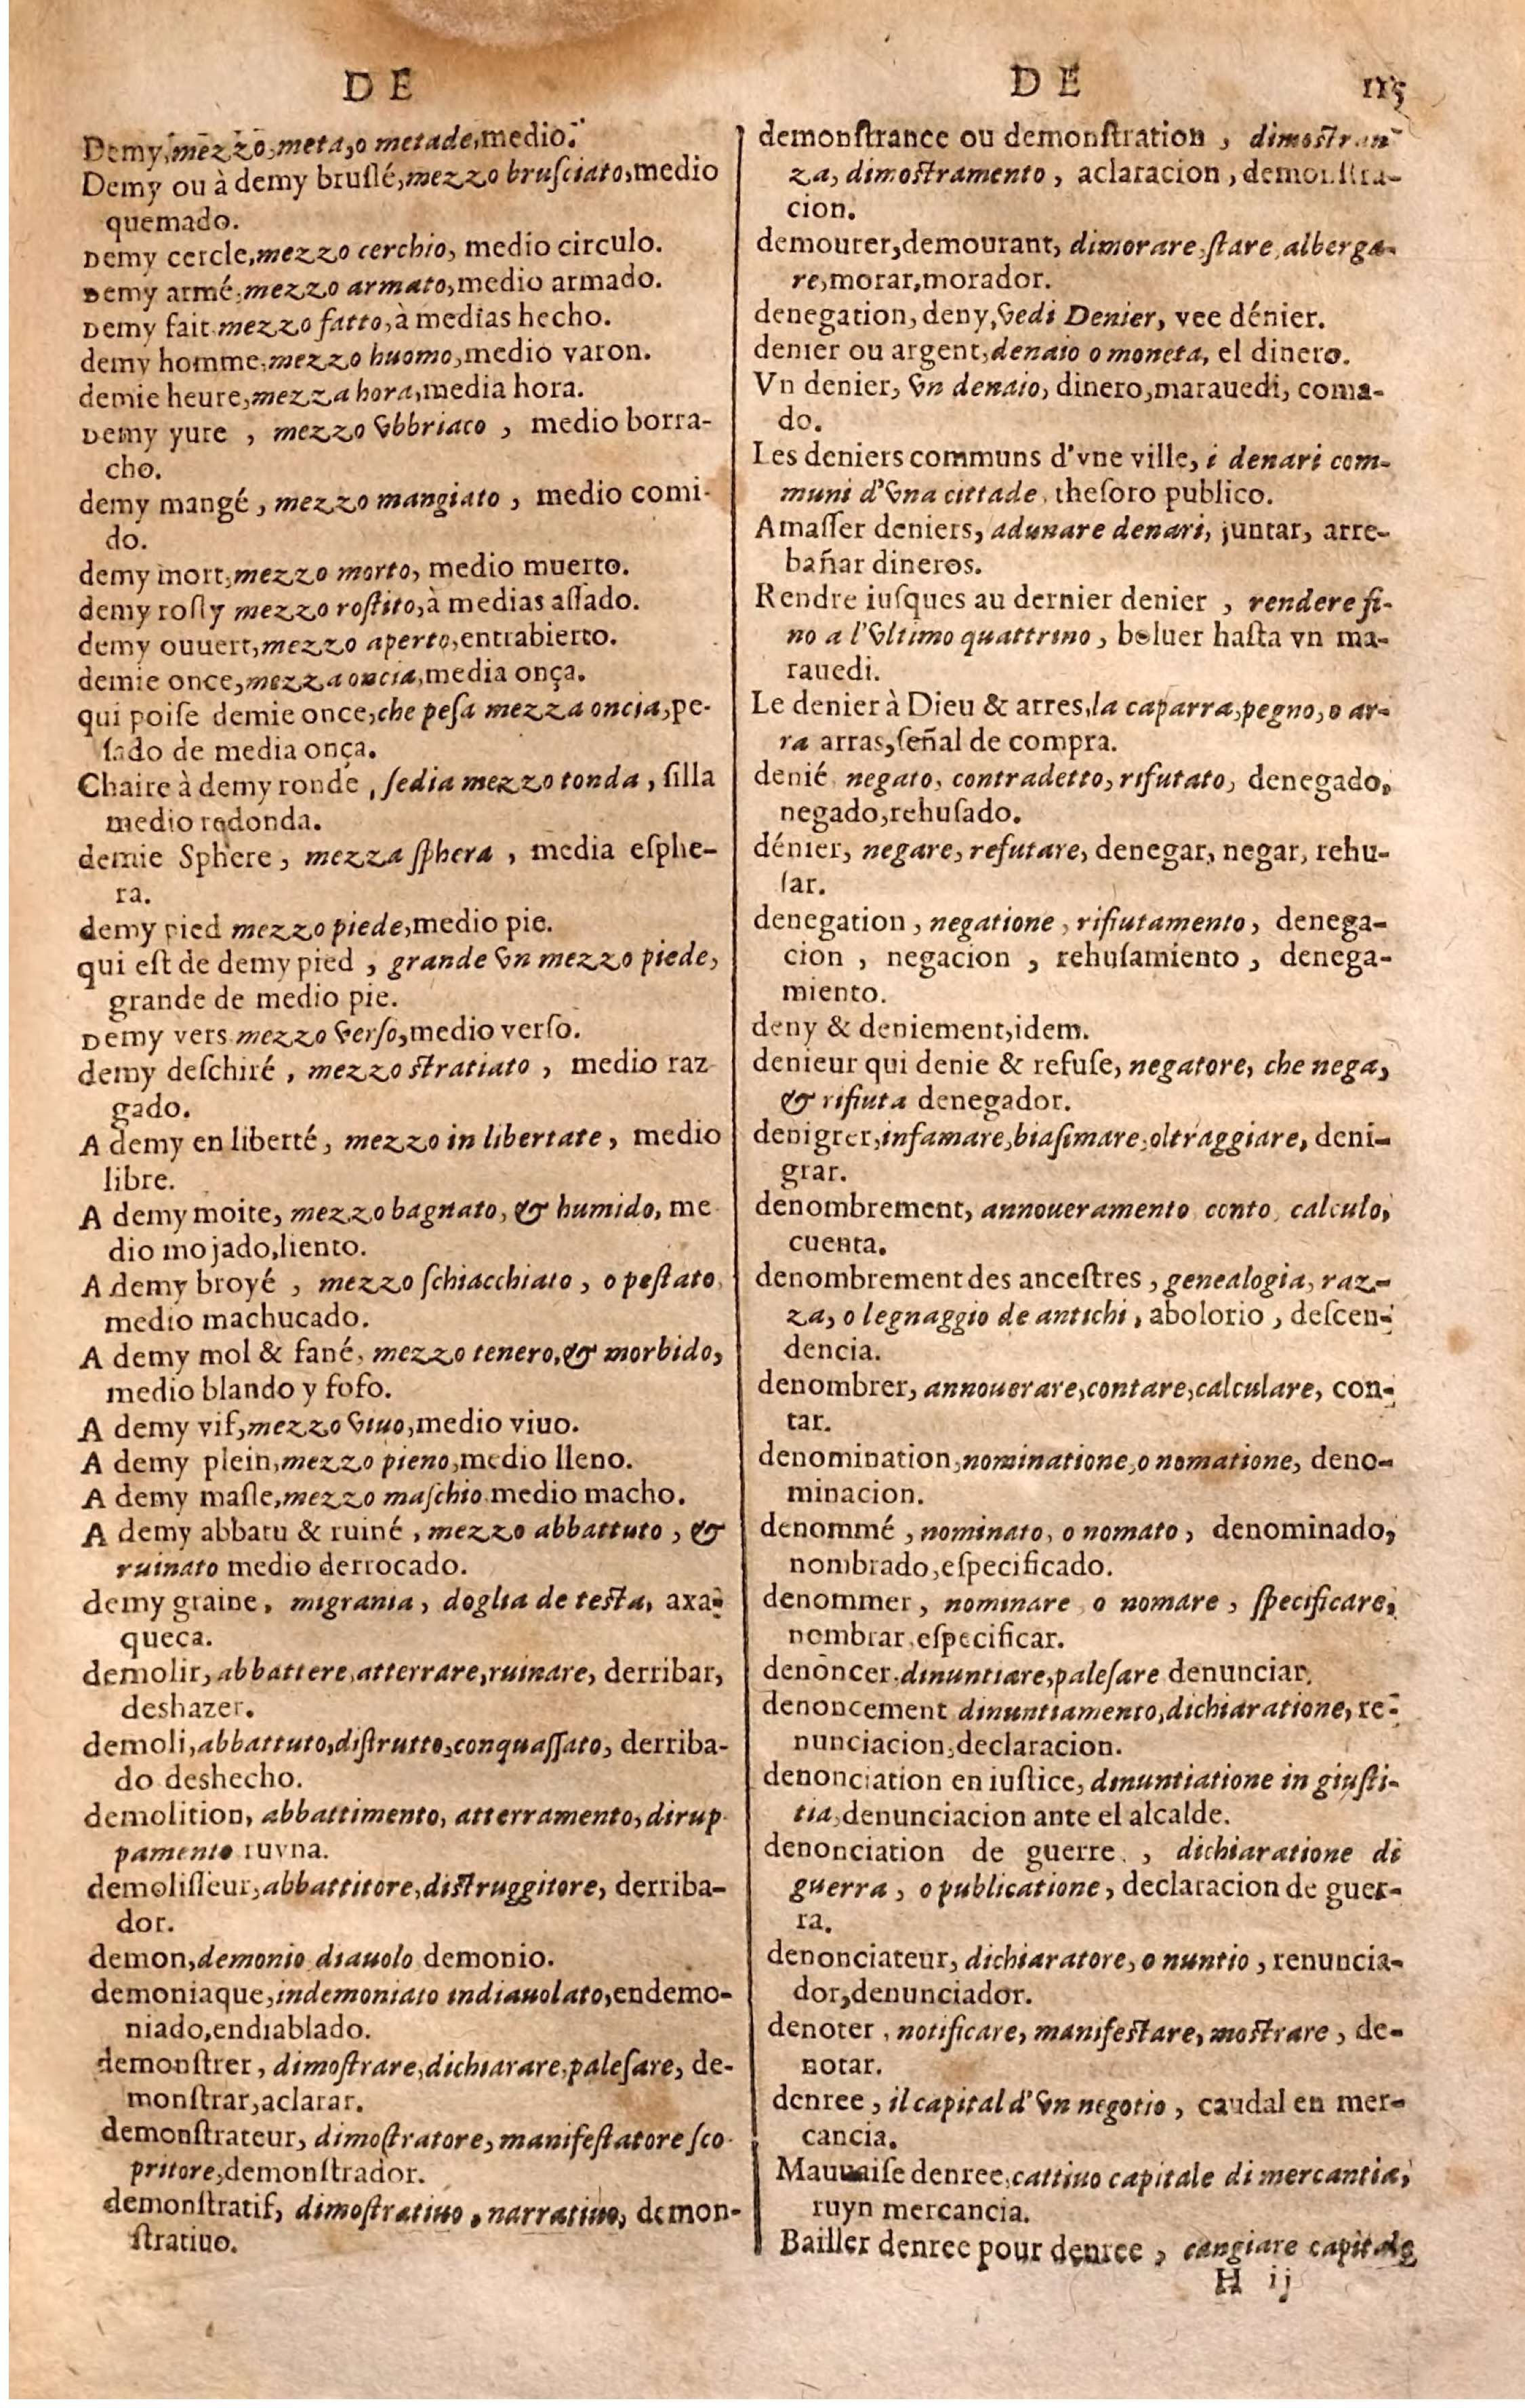 DE
Demy, mezzo, meta, o metade, medio.
Demy ou à demy bruslé, mezzo brusciato, medio
quemado.
Demy cercle, mezzo cerchio, medio circulo.
Demy armé, mezzo armato, medio armado.
Demy fait mezzo fatto, à medias hecho.
demy homme, mezzo huomo, medio varon.
demie heure, mezza hora, media hora.
Demy yure , mezzo vbbriaco , medio borra-
cho.
demy mangé , mezzo mangiato , medio comi-
do.
demy mort, mezzo morto, medio muerto.
demy rosty mezzo rostito, à medias assado.
demy ouuert, mezzo aperto, entrabierto.
demie once, mezza oncia, media onça.
qui poise demie once, che pesa mezza oncia, pe-
sado de media onça.
Chaire à demy ronde , sedia mezzo tonda , silla
medio redonda.
demie Sphere , mezza sphera , media esphe-
ra.
demy pied mezzo piede, medio pie.
qui est de demy pied , grande vn mezzo piede,
grande de medio pie.
Demy vers mezzo verso, medio verso.
demy deschiré , mezzo stratiato , medio raz
gado.
A demy en liberté , mezzo in libertate , medio
libre.
A demy moite, mezzo bagnato, & humido, me
dio mojado, liento.
A demy broyé , mezzo schiacchiato , o pestato,
medio machucado.
A demy mol & fané, mezzo tenero, & morbido,
medio blando y fofo.
A demy vif, mezzo viuo, medio viuo.
A demy plein, mezzo pieno, medio lleno.
A demy masle, mezzo maschio medio macho.
A demy abbatu & ruiné , mezzo abbattuto , &
ruinato medio derrocado.
demy graine, migrania, doglia de testa, axa-
queca.
demolir, abbattere, atterrare, ruinare, derribar,
deshazer.
demoli, abbattuto, distrutto, conquassato, derriba-
do deshecho.
demolition, abbattimento, atterramento, dirup
pamento ruyna.
demolisseur, abbattitore, distruggitore, derriba-
dor.
demon, demonio diauolo demonio.
demoniaque, indemoniato indiauolato, endemo-
niado, endiablado.
demonstrer, dimostrare, dichiarare, palesare, de-
monstrar, aclarar.
demonstrateur, dimostratore, manifestatore sco-
pritore, demonstrador.
demonstratif, dimostratiuo, narratiuo, demon-
stratiuo.
DE 115
demonstrance ou demonstration , dimostran-
za, dimostramento , aclaracion , demonstra-
cion.
demourer, demourant, dimorare, stare, alberga-
re, morar, morador.
denegation, deny, vedi Denier, vee dénier.
denier ou argent, denaio o moneta, el dinero.
Vn denier, vn denaio, dinero, marauedi, corna-
do.
Les deniers communs d'vne ville, i denari com-
muni d'vna cittade, thesoro publico.
Amasser deniers, adunare denari, juntar, arre-
bañar dineros.
Rendre iusques au dernier denier , rendere fi-
no a l'vltimo quattrino , boluer hasta vn ma-
rauedi.
Le denier à Dieu & arres, la caparra, pegno, o ar-
ra arras, señal de compra.
denié negato, contradetto, rifutato, denegado,
negado, rehusado.
dénier, negare, refutare, denegar, negar, rehu-
sar.
denegation , negatione , rifiutamento , denega-
cion , negacion , rehusamiento , denega-
miento.
deny & deniement, idem.
denieur qui denie & refuse, negatore, che nega,
& rifiuta denegador.
denigrer, infamare, biasimare, oltraggiare, deni-
grar.
denombrement, annoueramento conto, calculo,
cuenta.
denombrement des ancestres , genealogia, raz-
za, o legnaggio de antichi , abolorio , descen-
dencia.
denombrer, annouerare, contare, calculare, con-
tar.
denomination, nominatione, o nomatione, deno-
minacion.
denommé , nominato, o nomato , denominado,
nombrado, especificado.
denommer , nominare o nomare , specificare,
nombrar, especificar.
denoncer, dinuntiare, palesare denunciar.
denoncement dinuntiamento, dichiaratione, re-
nunciacion, declaracion.
denonciation en iustice, dinuntiatione in giusti-
tia, denunciacion ante el alcalde.
denonciation de guerre , dichiaratione di
guerra , o publicatione , declaracion de guer-
ra.
denonciateur, dichiaratore, o nuntio , renuncia-
dor, denunciador.
denoter , notificare, manifestare, mostrare , de-
notar.
denree , il capital d'vn negotio , caudal en mer-
cancia.
Mauuaise denree, cattiuo capitale di mercantia,
ruyn mercancia.
Bailler denree pour denree , cangiare capitale
H ij